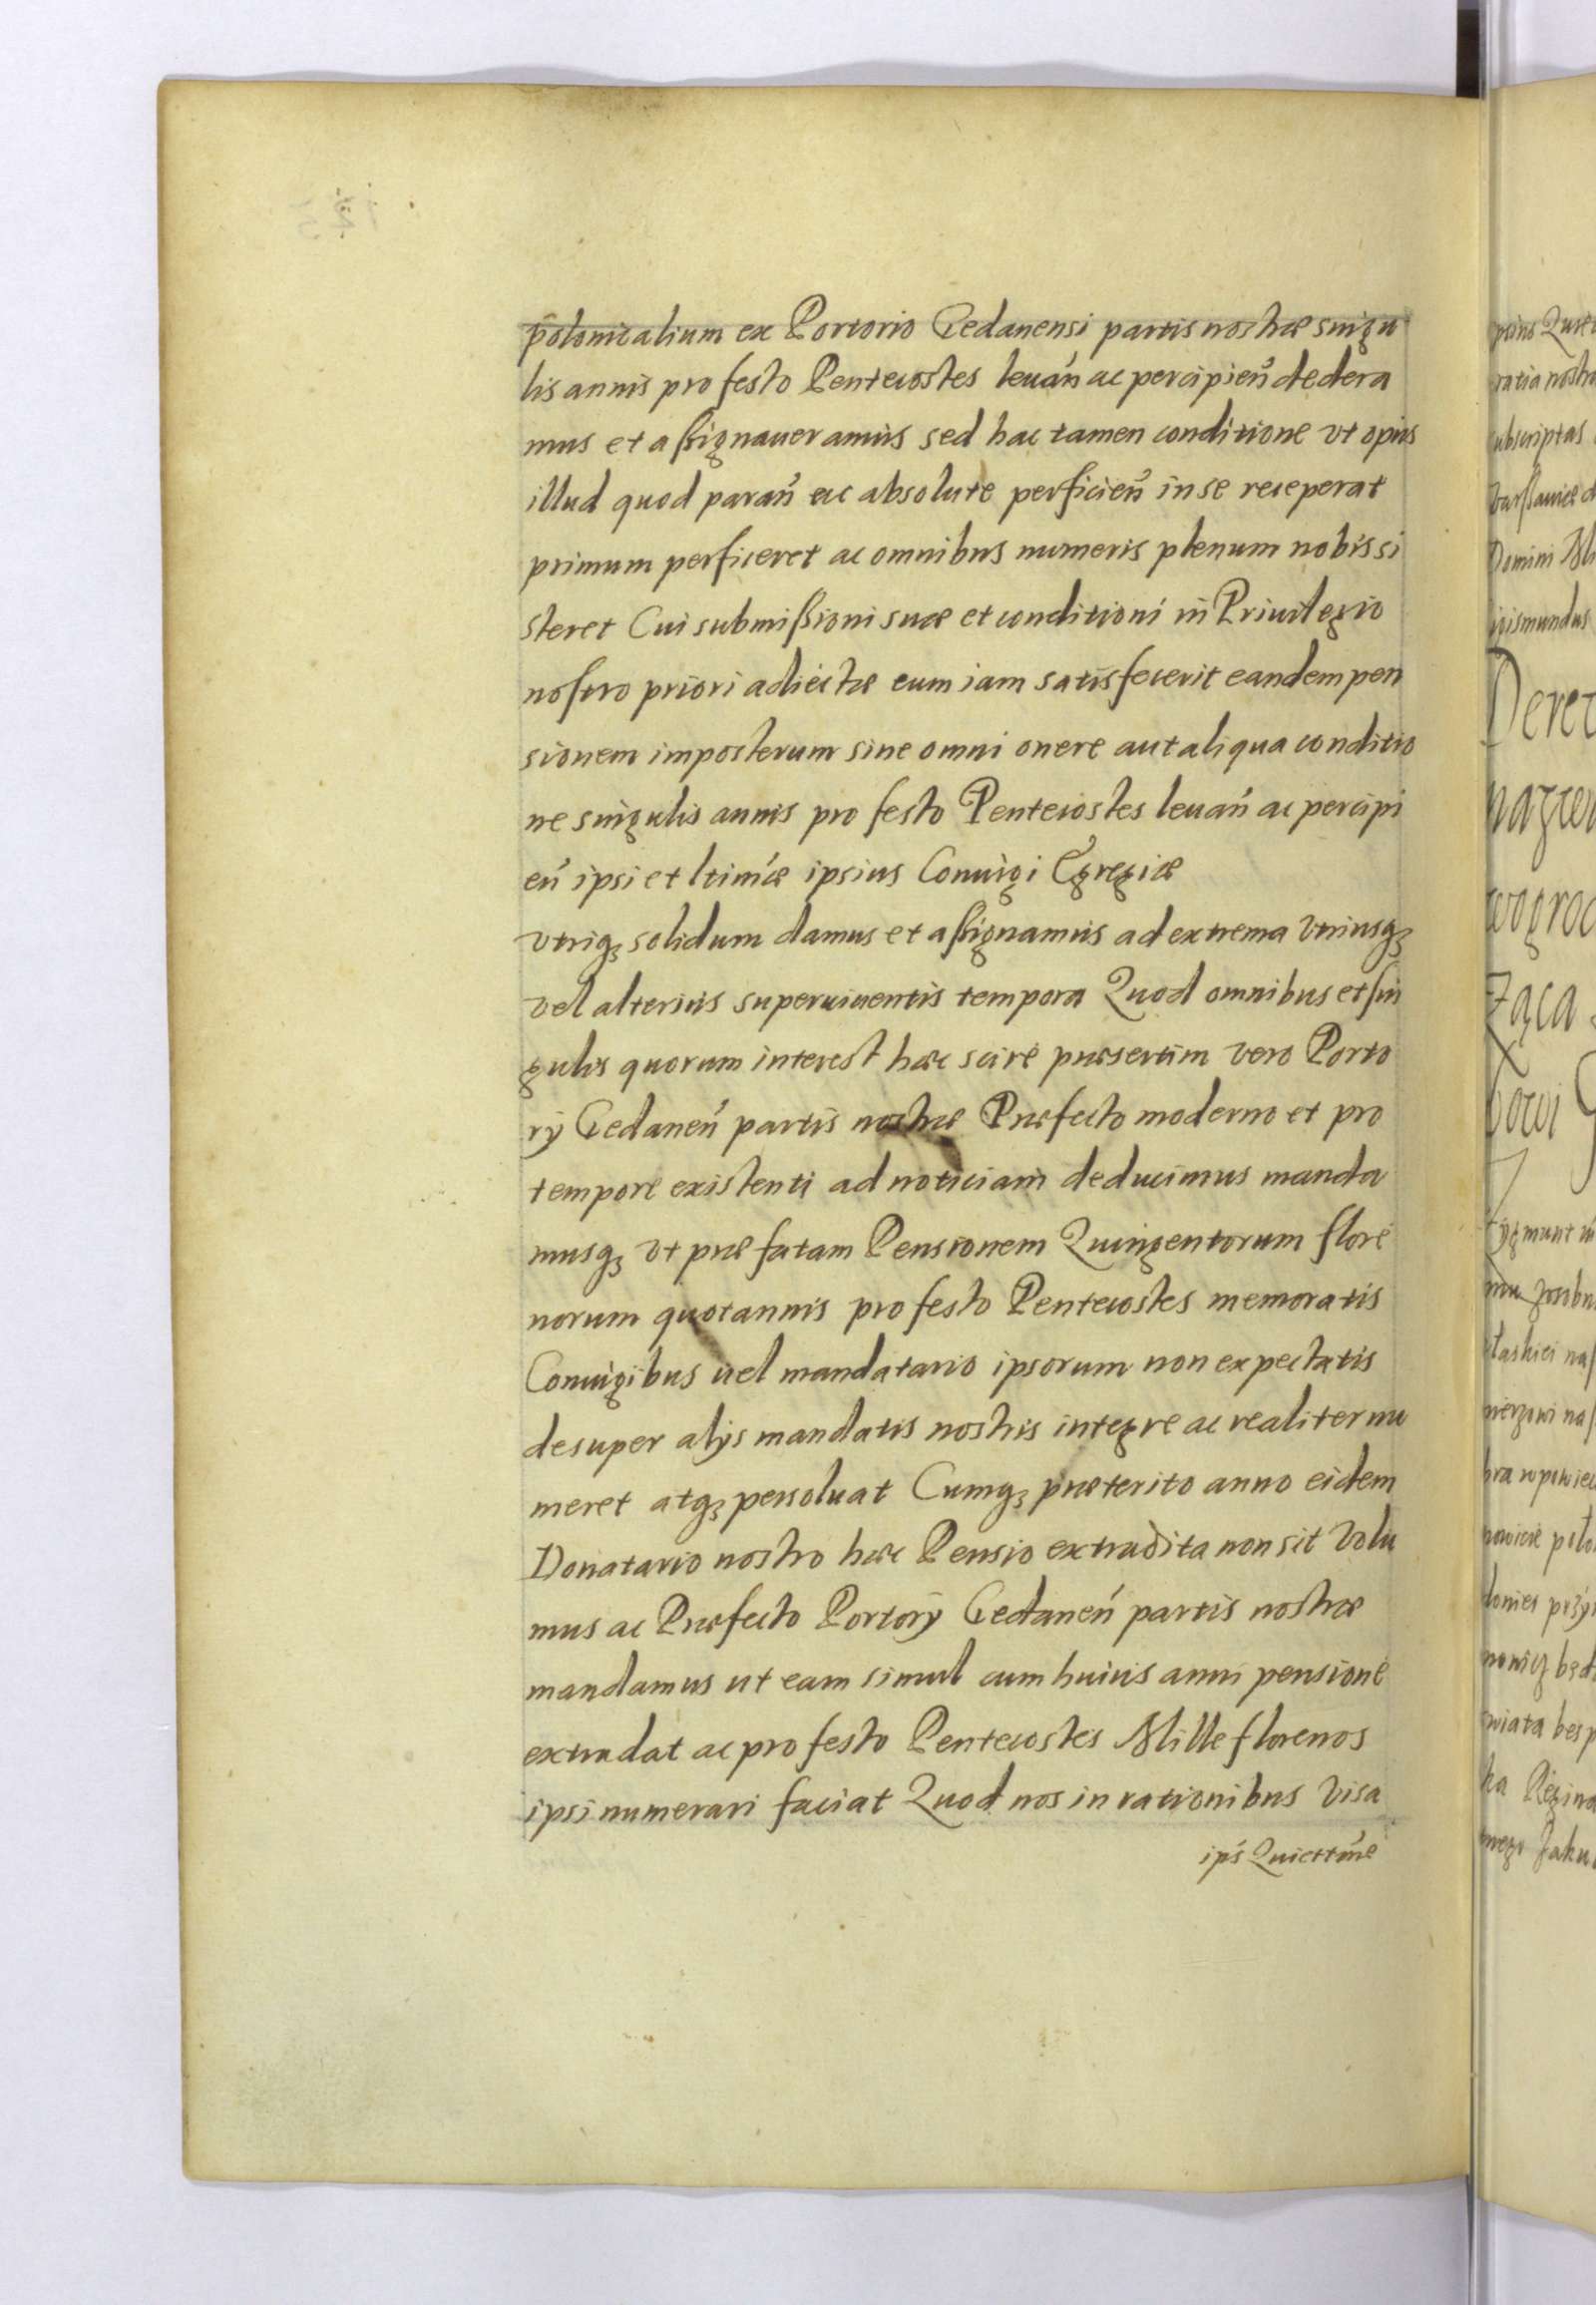 polonicalium ex Portorio Gedanensi partis nostræ singu
lis annis pro festo Pentecostes leuan̄ ac percipien̄ dedera
mus et aßignaueramus sed hac tamen conditione vt opus
illud quod paran̄ ac absolute perficien̄ in se receperat
primum perficeret ac omnibus numeris plenum nobis si
steret Cui submißioni suæ et conditioni in Priuilegio
nostro priori adiectæ cum iam satisfecerit eandem pen
sionem imposterum sine omni onere aut aliqua conditio
ne singulis annis pro festo Pentecostes leuan̄ ac percipi
en̄ ipsi et ltimæ ipsius Coniugi Egregiæ
vtriqꝫ solidum damus et aßignamus ad extrema vtriusqꝫ
vel alterius superuiuentis tempora Quod omnibus et sin
gulis quorum interest hæc scire præsertim vero Porto
rÿ Gedanen̄ partis nostræ Præfecto moderno et pro
tempore existenti ad noticiam deducimus manda
musqꝫ vt præfatam Pensionem Quingentorum flore
norum quotannis pro festo Pentecostes memoratis
Coniugibus uel mandatario ipsorum non expectatis
desuper alÿs mandatis nostris integre ac realiter nu
meret atqꝫ persoluat Cumqꝫ præterito anno eidem
Donatario nostro hæc Pensio extradita non sit Volu
mus ac Præfecto Portorÿ Gedanen̄ partis nostræ
mandamus ut eam simul cum huius anni pensione
extradat ac pro festo Pentecostes Mille florenos
ipsi numerari faciat Quod nos in rationibus visa